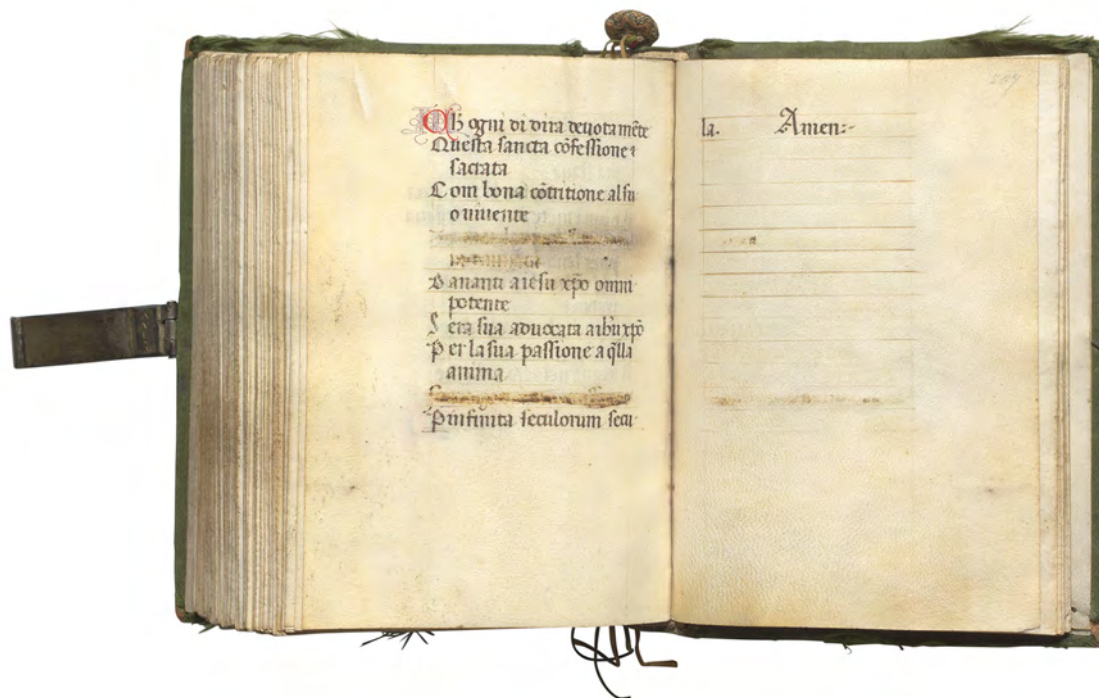 Qh ogni di dira deuotamẽte
Questa sancta cõfessione ⁊
sacrata
Com bona cõtritione al su
o uiuente
Dananti a iesu xp̃o omni
potente
Sera sua aduocata a ihu xp̃o
Per la sua passione a q̃lla
anima
P infinita seculorum secu
la. Amen:-